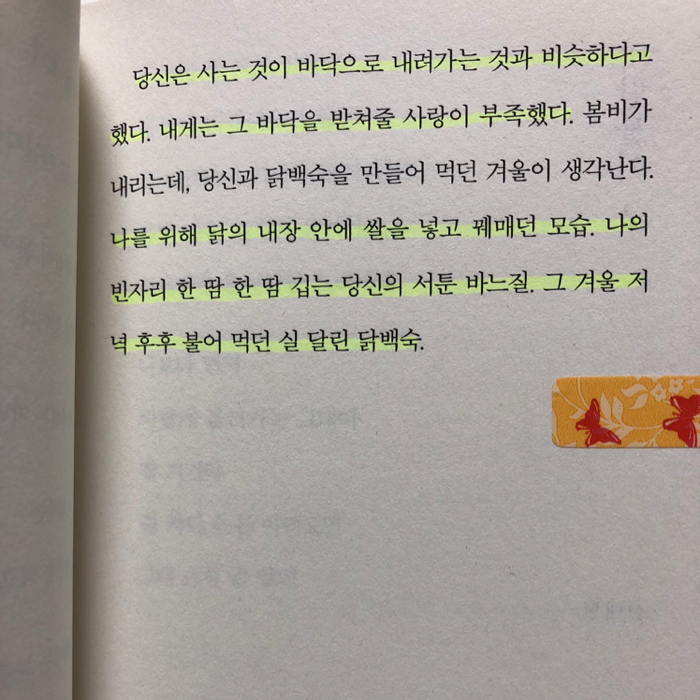 당신은 사는 것이 바닥으로 내려가는 것과 비슷하다고
했다. 내게는 그 바닥을 받쳐줄 사랑이 부족했다. 봄비가
내리는데, 당신과 닭백숙을 만들어 먹던 겨울이 생각난다.
나를 위해 닭의 내장 안에 쌀을 넣고 꿰매던 모습. 나의
빈자리 한 땀 한 땀 깁는 당신의 서툰 바느질. 그 겨울 저
녁 후후 불어 먹던 실 달린 닭백숙.